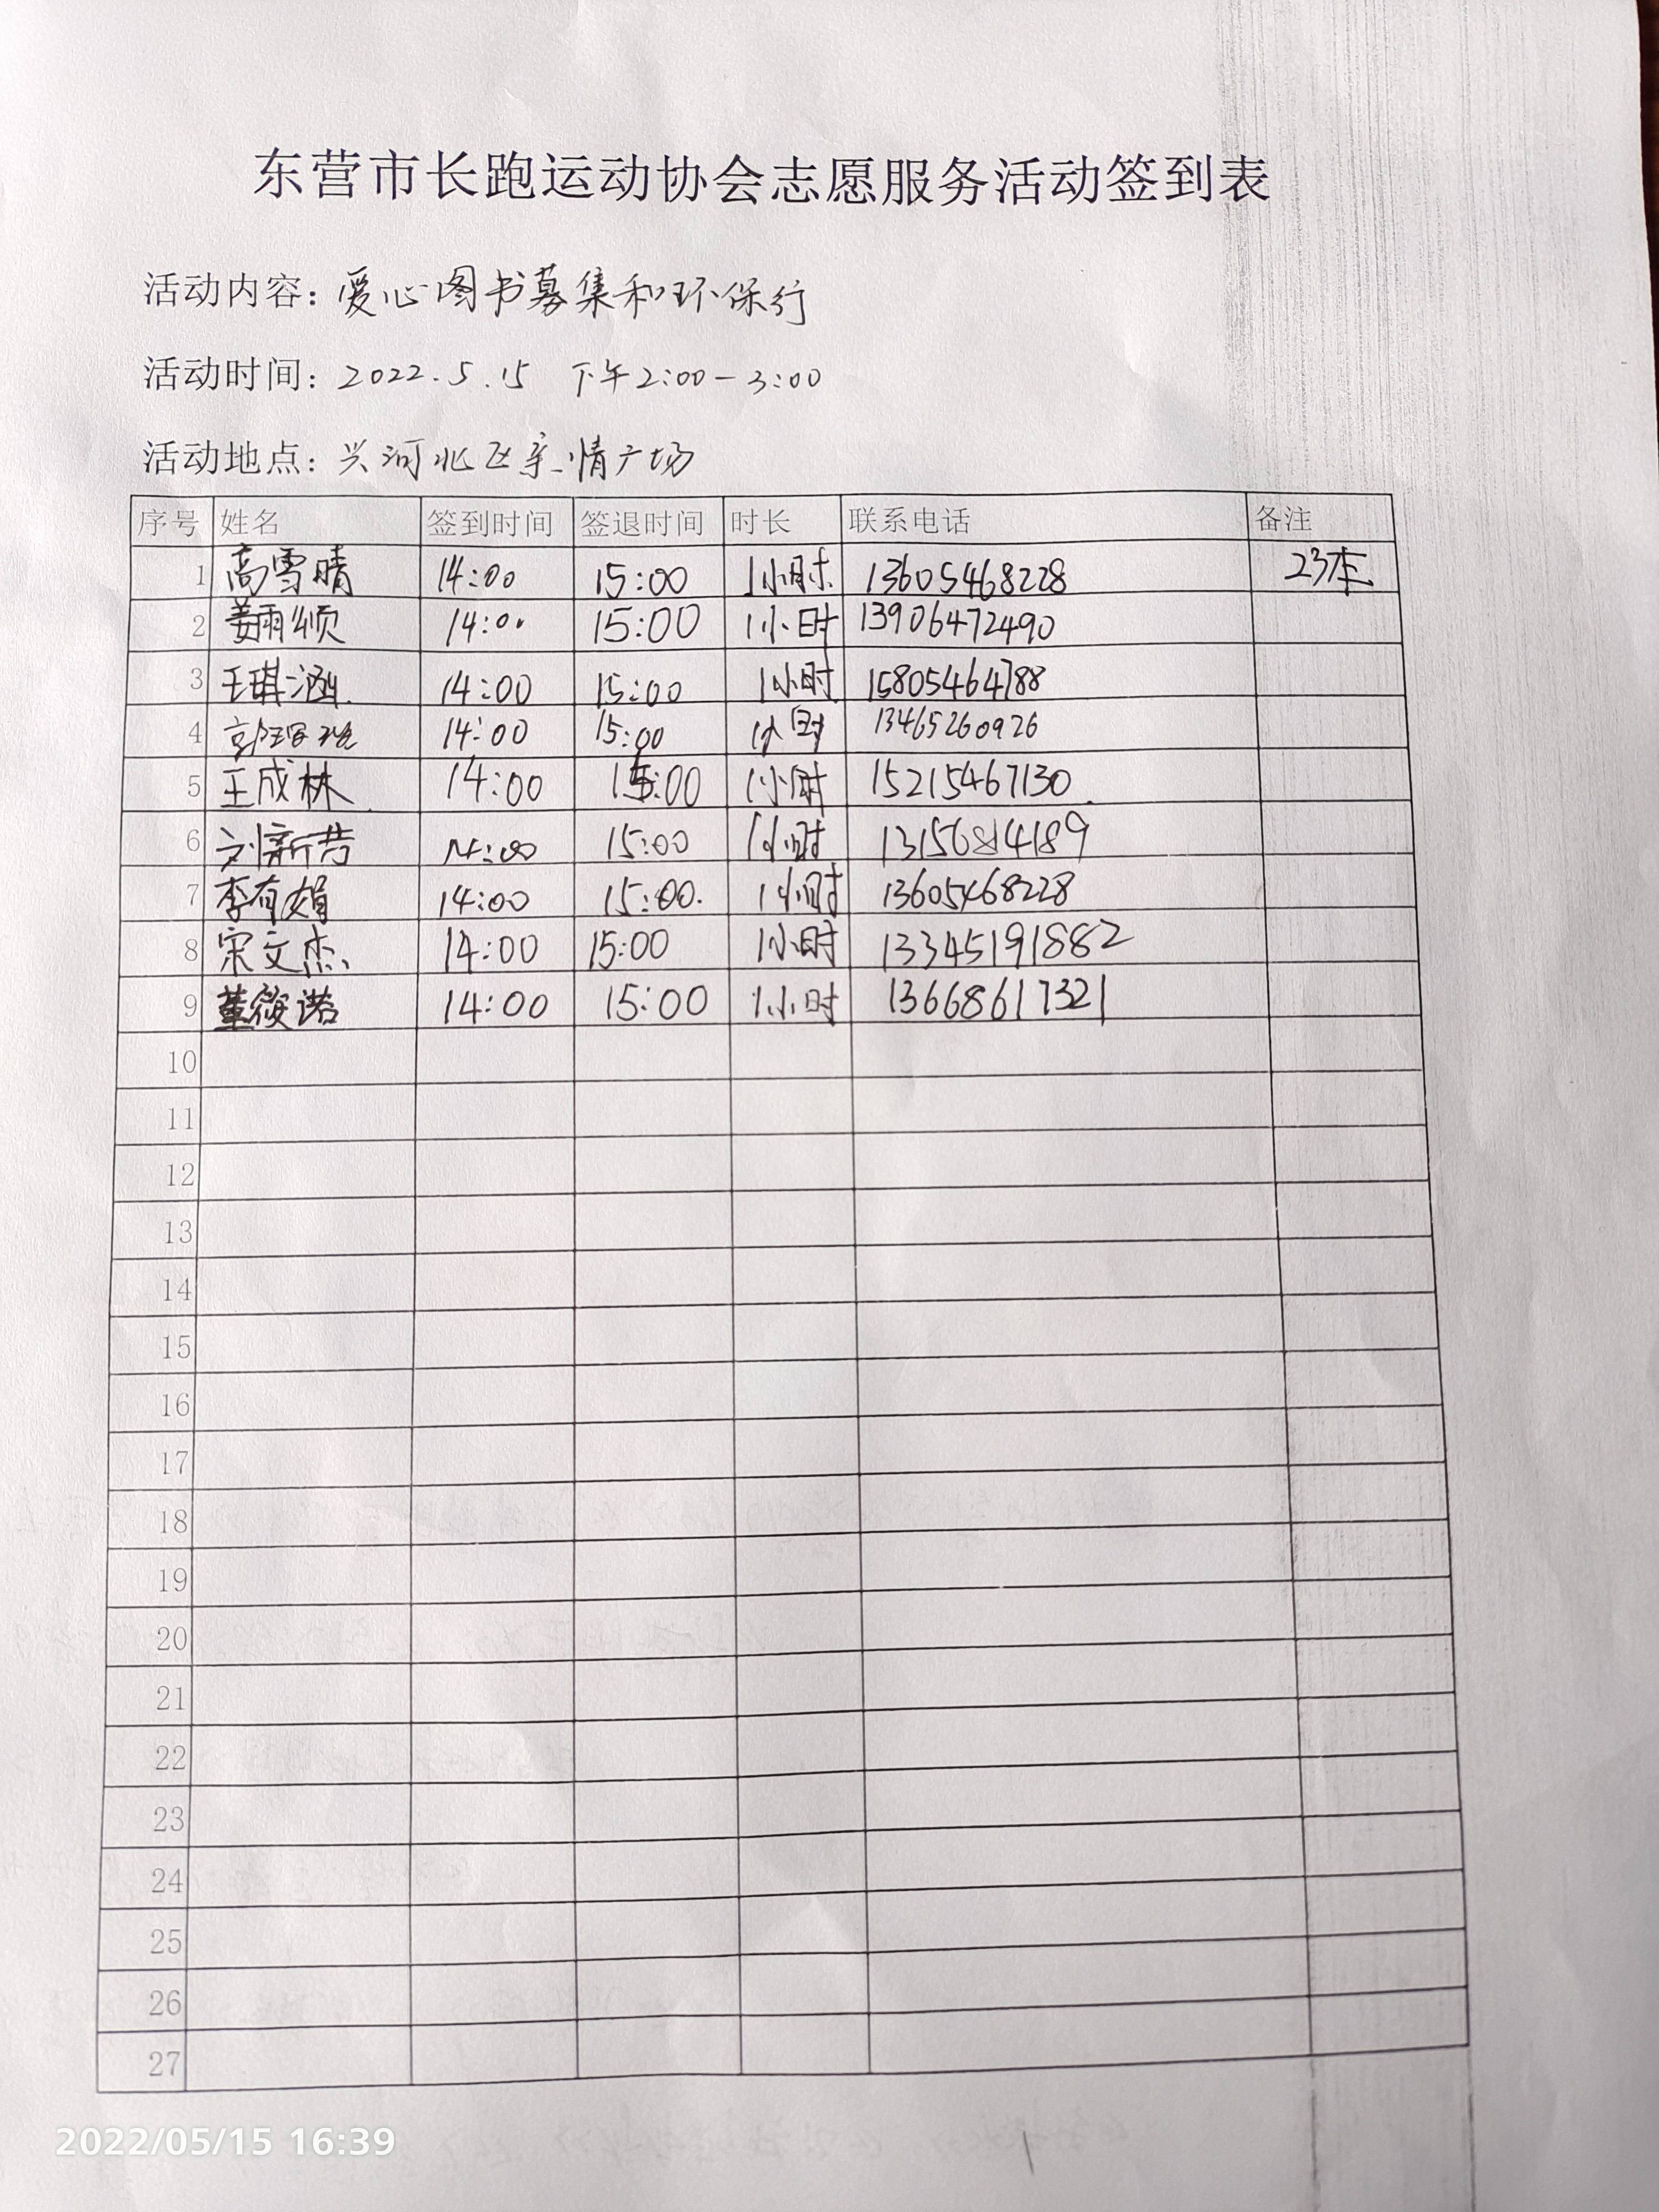 东营市长跑运动协会志愿服务活动签到表
活动内容：爱心图书募集和环保行
活动时间：2022.5.15 下午2:00-3:00
活动地点：兴河北区亲情广场
序号 姓名 签到时间 签退时间 时长 联系电话 备注
1 高雪晴 14:00 15:00 1小时 13605468228 23本
2 姜雨颂 14:00 15:00 1小时 13906472490
3 王琪涵 14:00 15:00 1小时 15805464788
4 14:00 15:00 1小时 13465260926
5 王成林 14:00 15:00 1小时 15215467130
6 14:00 15:00 1小时
7 李有娟 14:00 15:00 1小时 13605468228
8 宋文杰 14:00 15:00 1小时 13345191882
9 董筱诺 14:00 15:00 1小时 13668617321
10
11
12
13
14
15
16
17
18
19
20
21
22
23
24
25
26
27
2022/05/15 16:39